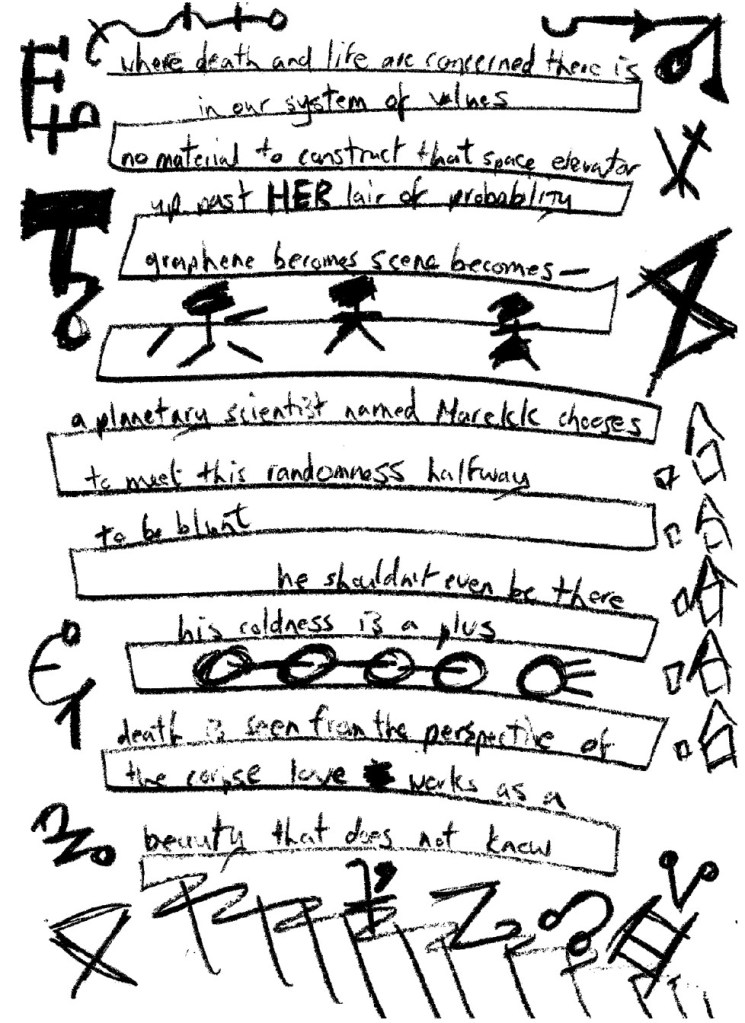 where death and life are concerned there is
in our system of values
no material to construct that space elevator
up past HER lair of probability
graphene becomes scene becomes—
a planetary scientist named Marekk chooses
to meet this randomness halfway
to be blunt
he shouldn't even be there
his coldness is a plus
death is seen from the perspective of
the corpse love works as a
beauty that does not know